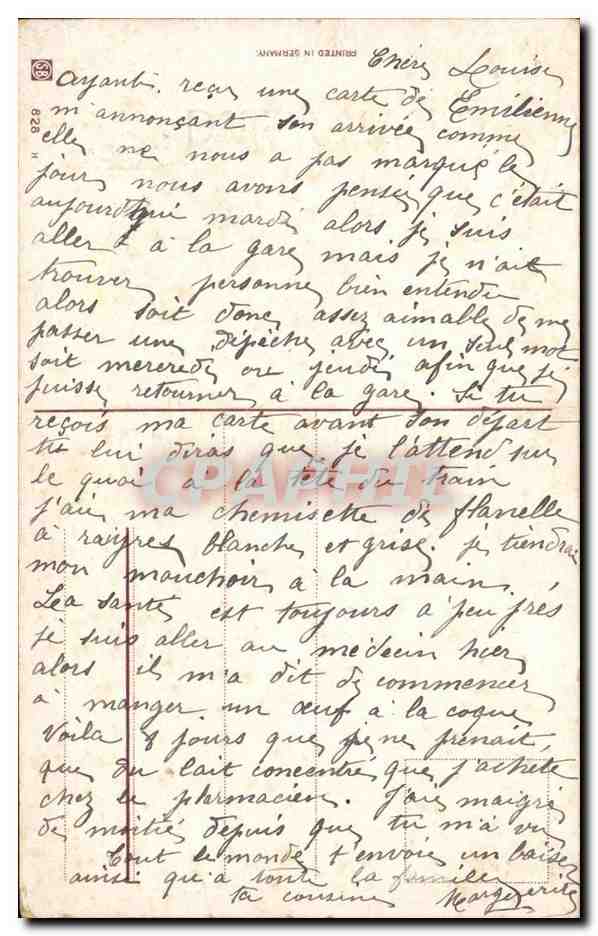 PRINTED IN GERMANY.
SB
828 H
Chère Louise
Ayant reçu une carte de Emilienne
m'annonçant son arrivée comme
elle ne nous a pas marqué le
jour nous avons pensée que c'était
aujourd'hui mardi alors je suis
aller à la gare mais je n'ait
trouver personne bien entendu
alors soit donc assez aimable de me
passer une dépèche avec un seul mot
soit mercredi ore jeudi afin que je
puisse retourner à la gare. Si tu
reçois ma carte avant son départ
tu lui diras que je l'attend sur
le quai a la tête du train
j'ai ma chemisette de flanelle
à raigres blanche et grise. je tiendrai
mon mouchoir à la main.
Lea santé est toujours à peu prés
je suis aller au médecin hier
alors il m'a dit de commencer
à manger un œuf à la coque
Voila 8 jours que je ne prenait,
que du lait concentré que j'achete
chez le pharmacien. J'ai maigri
de moitié depuis que tu m'a vu
Tout le monde t'envoie un baiser
ainsi qu'a toute la famille
ta cousine Marguerite
CPAPHIL